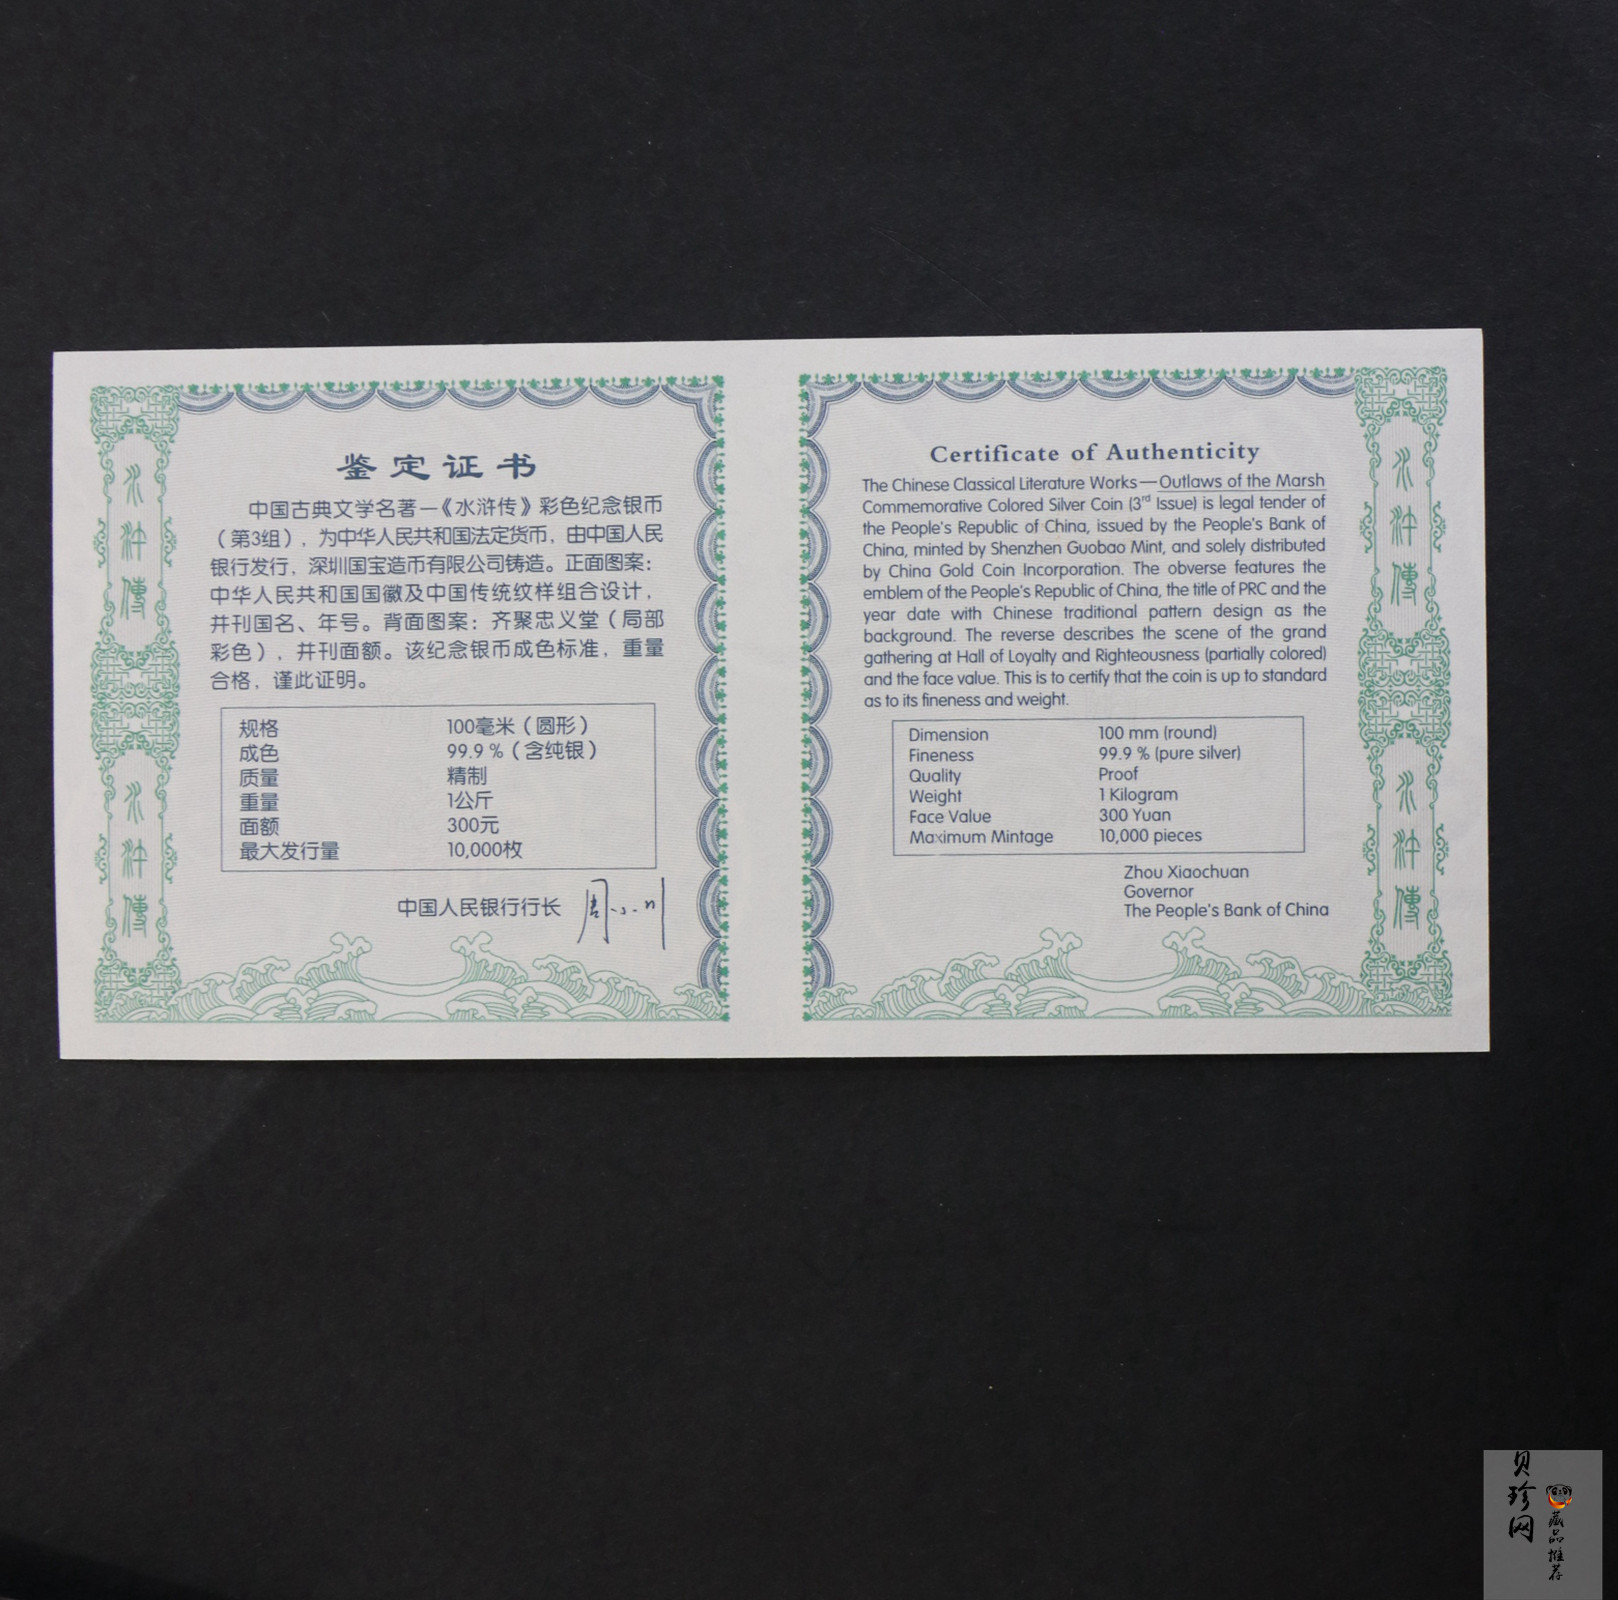 鉴定证书
中国古典文学名著—《水浒传》彩色纪念银币
（第3组），为中华人民共和国法定货币，由中国人民
银行发行，深圳国宝造币有限公司铸造。正面图案：
中华人民共和国国徽及中国传统纹样组合设计，
并刊国名、年号。背面图案：齐聚忠义堂（局部
彩色），并刊面额。该纪念银币成色标准，重量
合格，谨此证明。
规格 100毫米（圆形）
成色 99.9 %（含纯银）
质量 精制
重量 1公斤
面额 300元
最大发行量 10,000枚
中国人民银行行长 周小川
水浒傳
水浒傳
Certificate of Authenticity
The Chinese Classical Literature Works—Outlaws of the Marsh
Commemorative Colored Silver Coin (3rd Issue) is legal tender of
the People's Republic of China, issued by the People's Bank of
China, minted by Shenzhen Guobao Mint, and solely distributed
by China Gold Coin Incorporation. The obverse features the
emblem of the People's Republic of China, the title of PRC and the
year date with Chinese traditional pattern design as the
background. The reverse describes the scene of the grand
gathering at Hall of Loyalty and Righteousness (partially colored)
and the face value. This is to certify that the coin is up to standard
as to its fineness and weight.
Dimension 100 mm (round)
Fineness 99.9 % (pure silver)
Quality Proof
Weight 1 Kilogram
Face Value 300 Yuan
Maximum Mintage 10,000 pieces
Zhou Xiaochuan
Governor
The People's Bank of China
水浒傳
水浒傳
贝珍网
藏品推荐